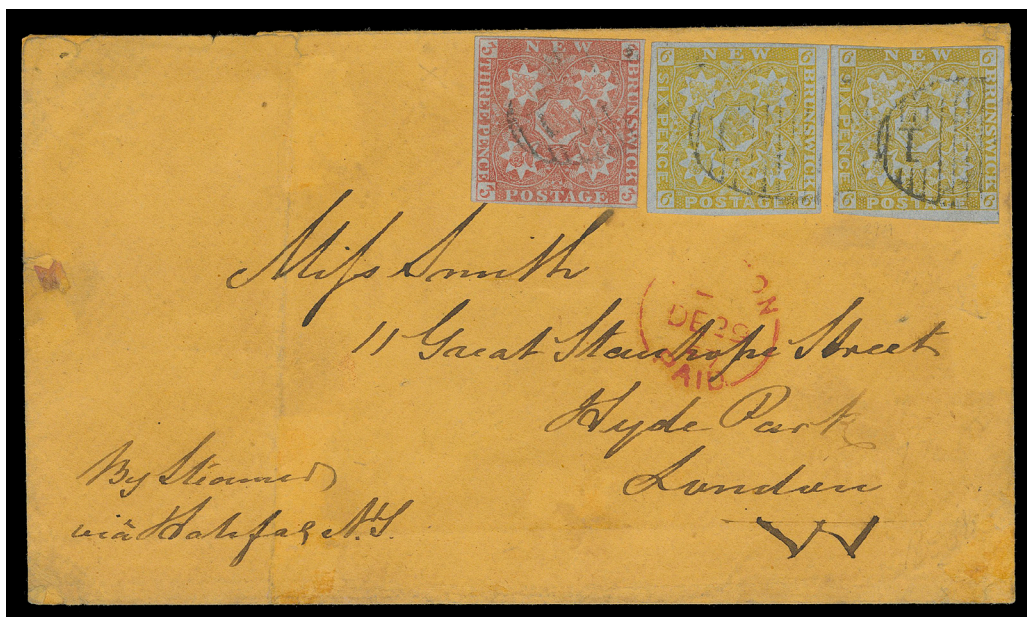 NEW BRUNSWICK POSTAGE THREE PENCE 3 3 3 3
NEW BRUNSWICK POSTAGE SIX PENCE 6 6 6 6
NEW BRUNSWICK POSTAGE SIX PENCE 6 6 6 6
1
Miss Smith
ON
DE 29
PAID
11 Great Stanhope Street
Hyde Park
London
W
By Steamer
via Halifax N.S.